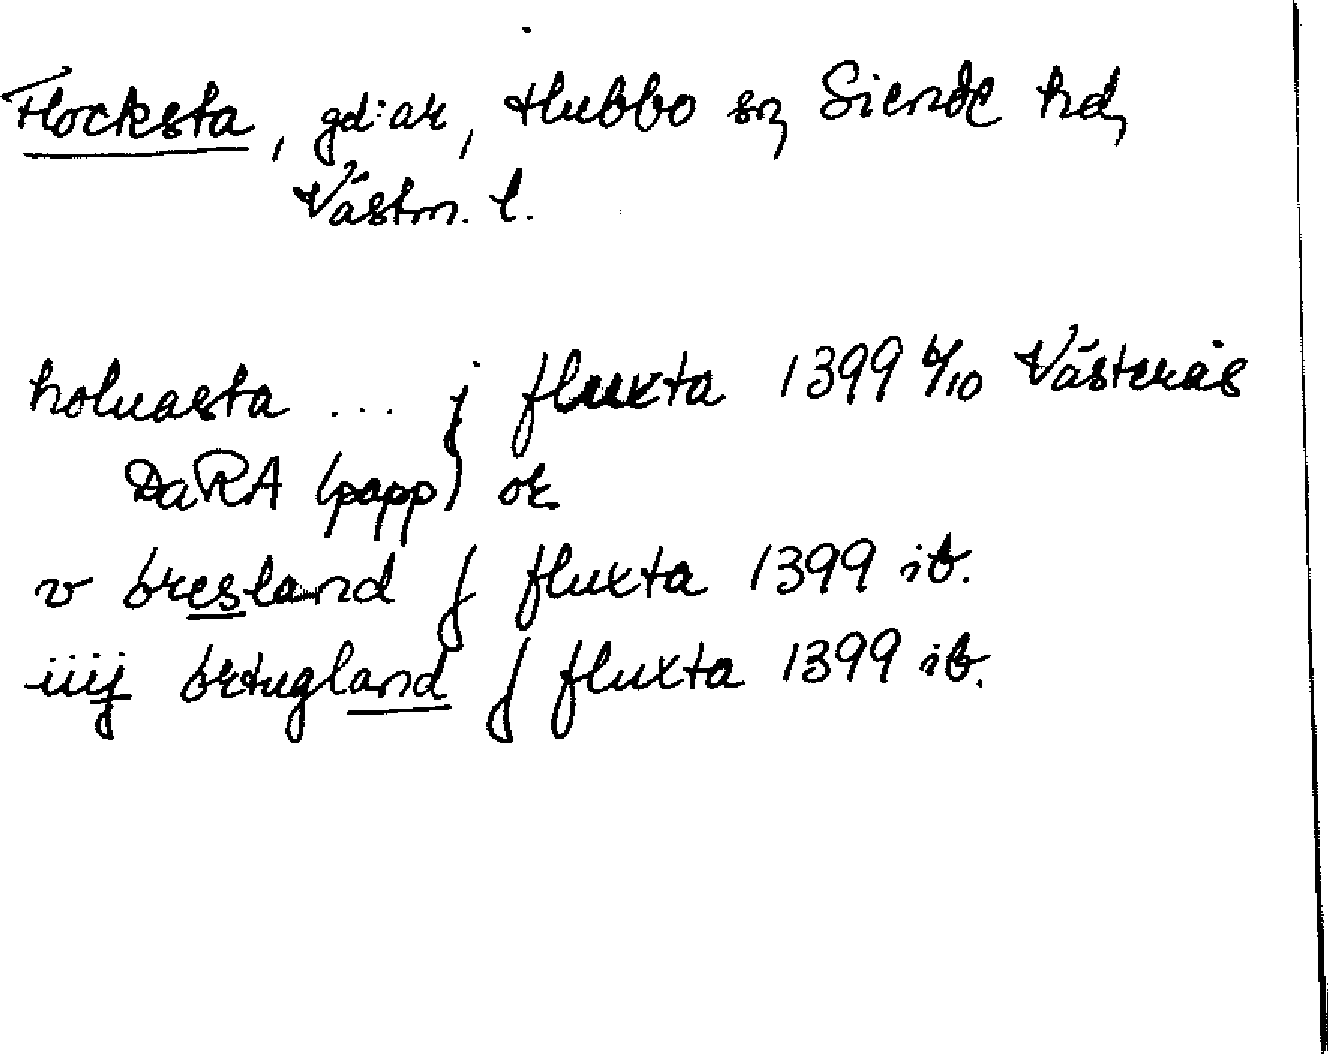 Flocksta, gd:ar, Hubbo sn, Siende hd,
Västm. l.
holuasta ... j fluxta 1399 6/10 Västerås
DaRA (papp) or.
v øresland j fluxta 1399 ib.
iiij ørtugland j fluxta 1399 ib.